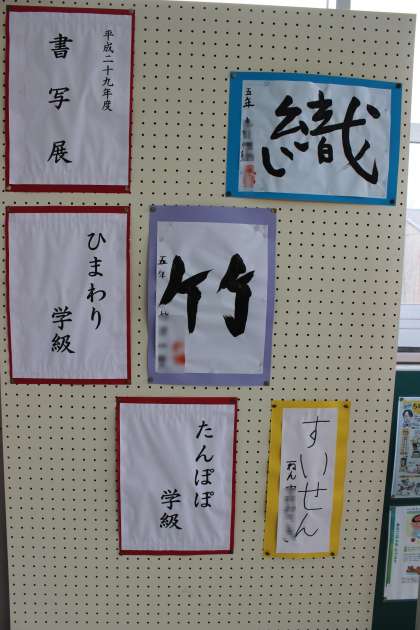 平成二十九年度
書写展
織
五年
ひまわり
学級
竹
五年
たんぽぽ
学級
すいせん
一ねん